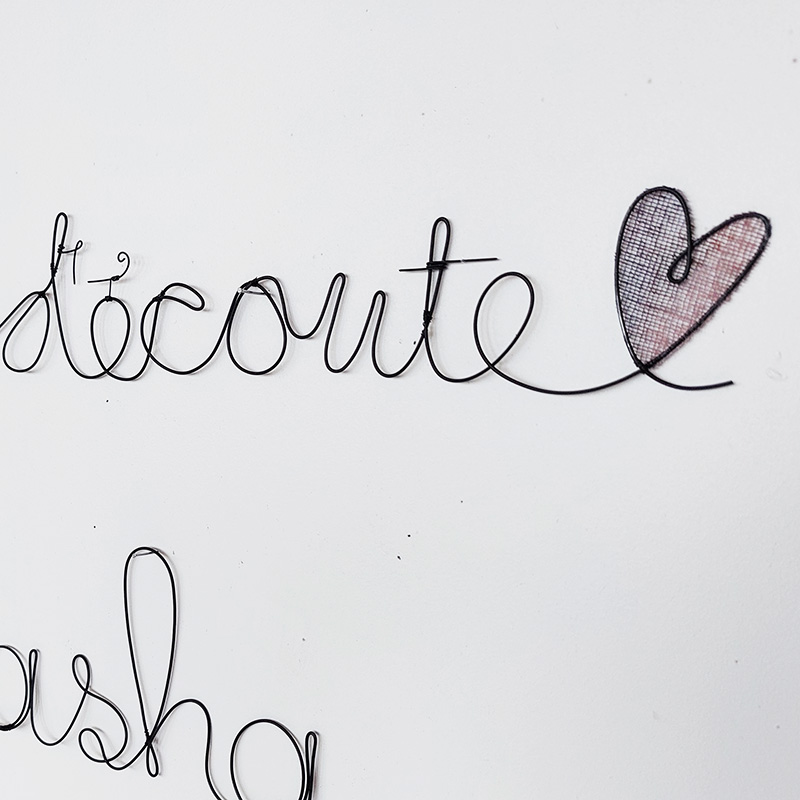 d'écoute
asha